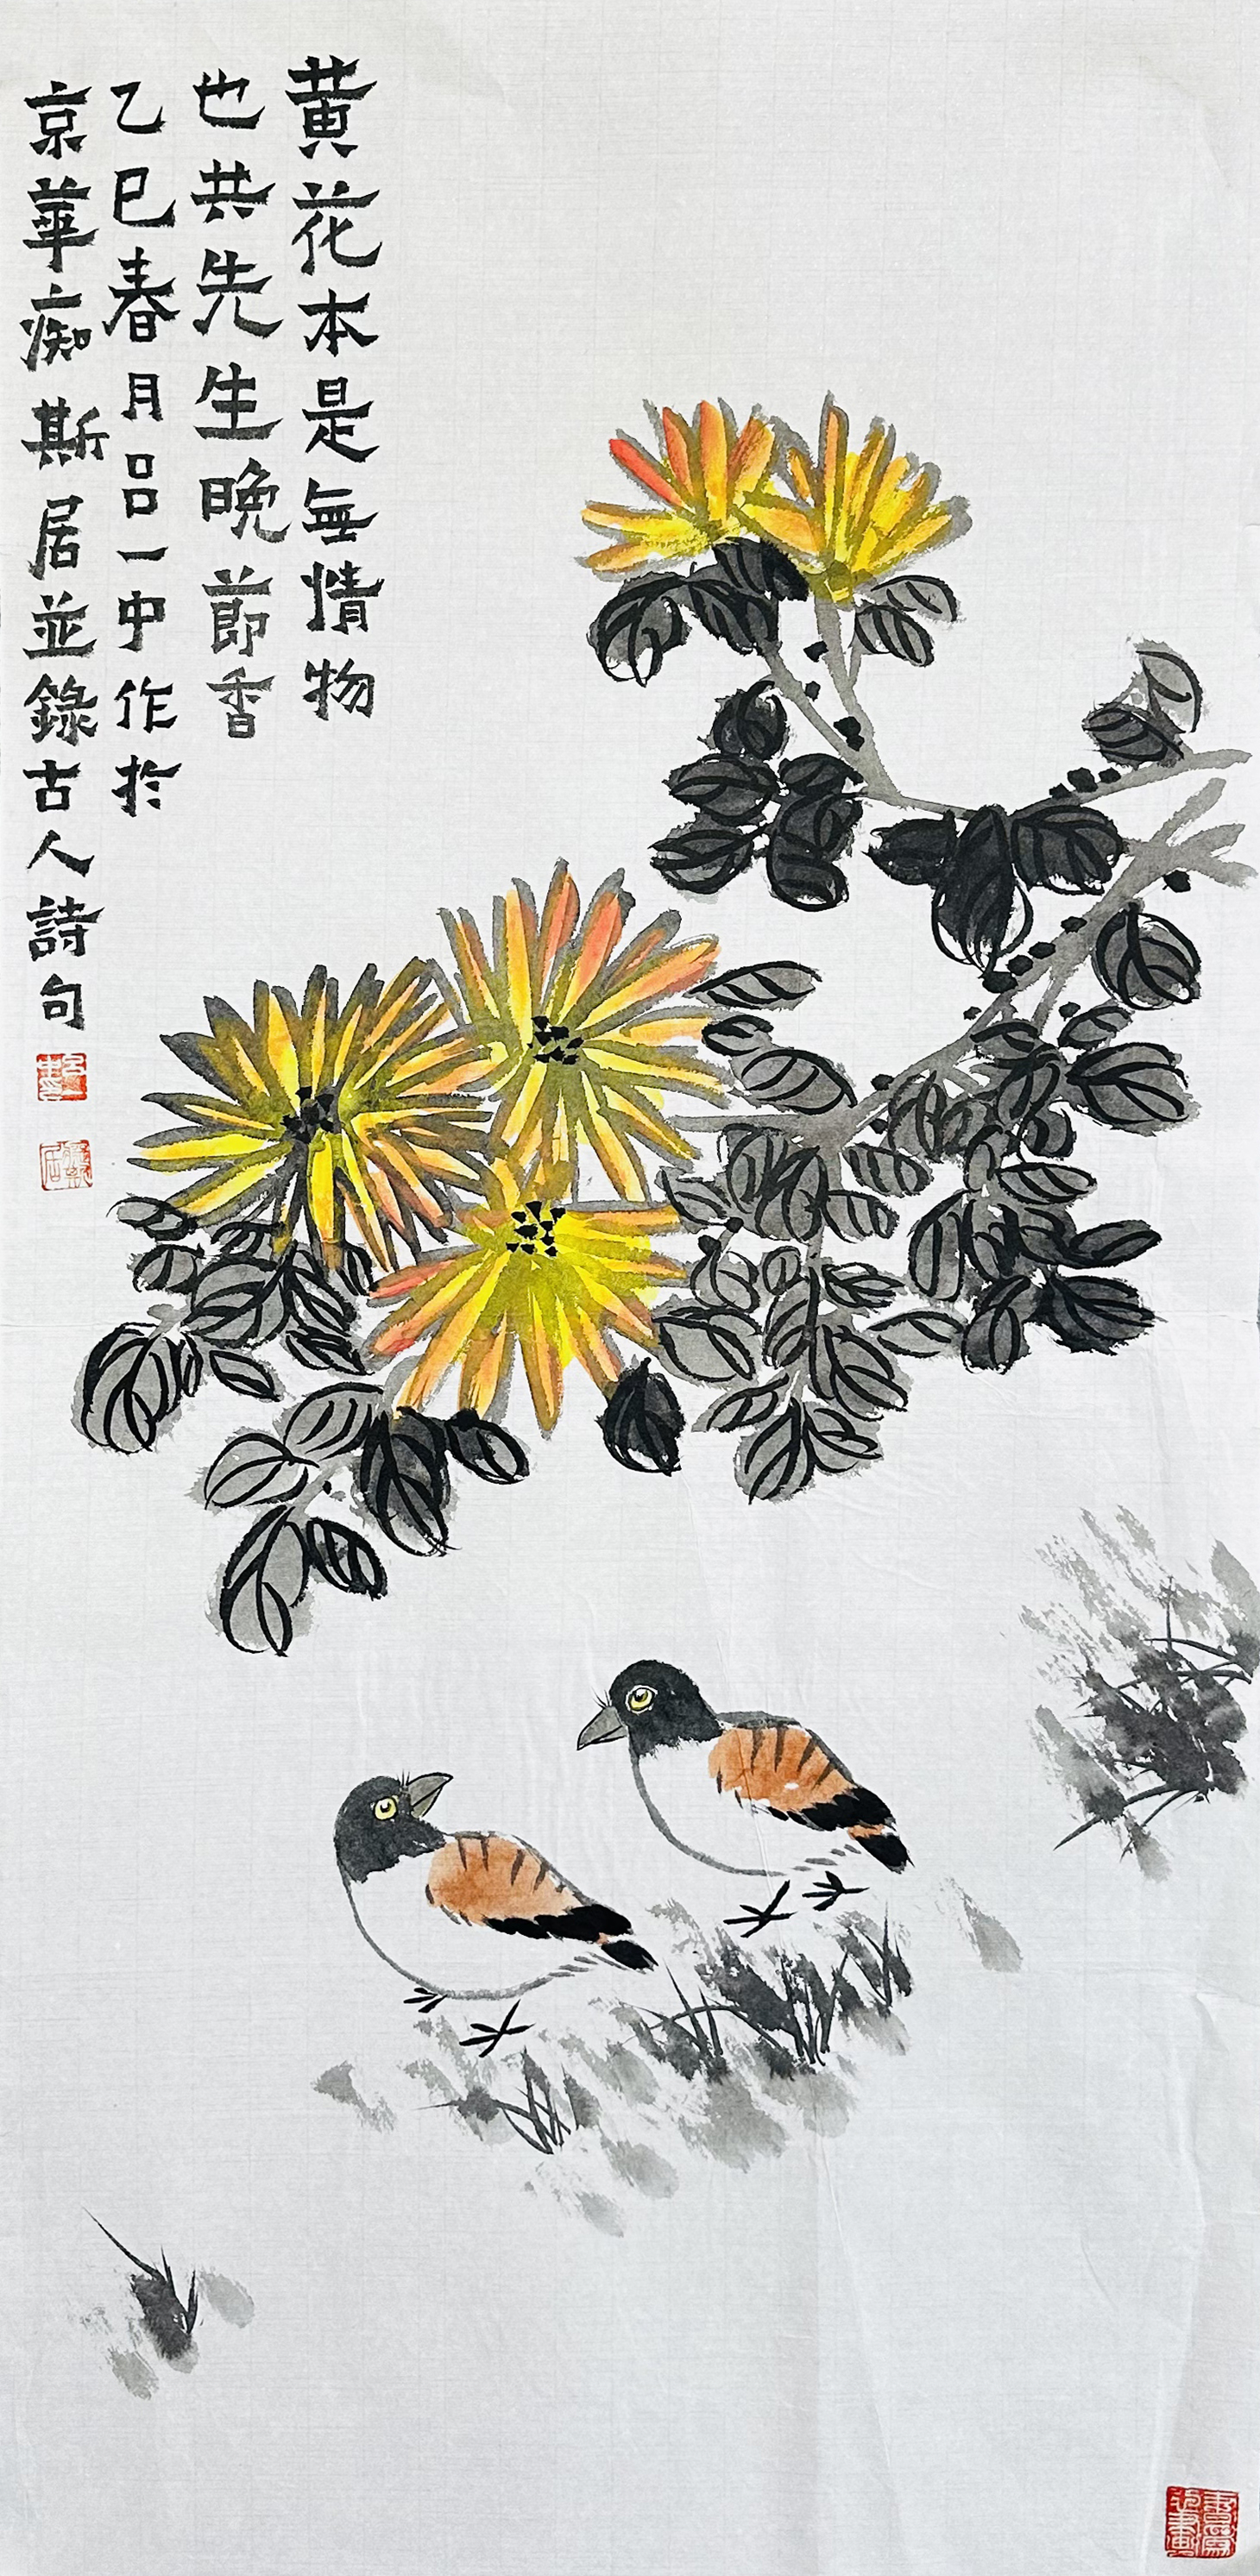 黄花本是無情物
也共先生晚節香
乙巳春月吕一中作於
京華痴斯居並錄古人詩句